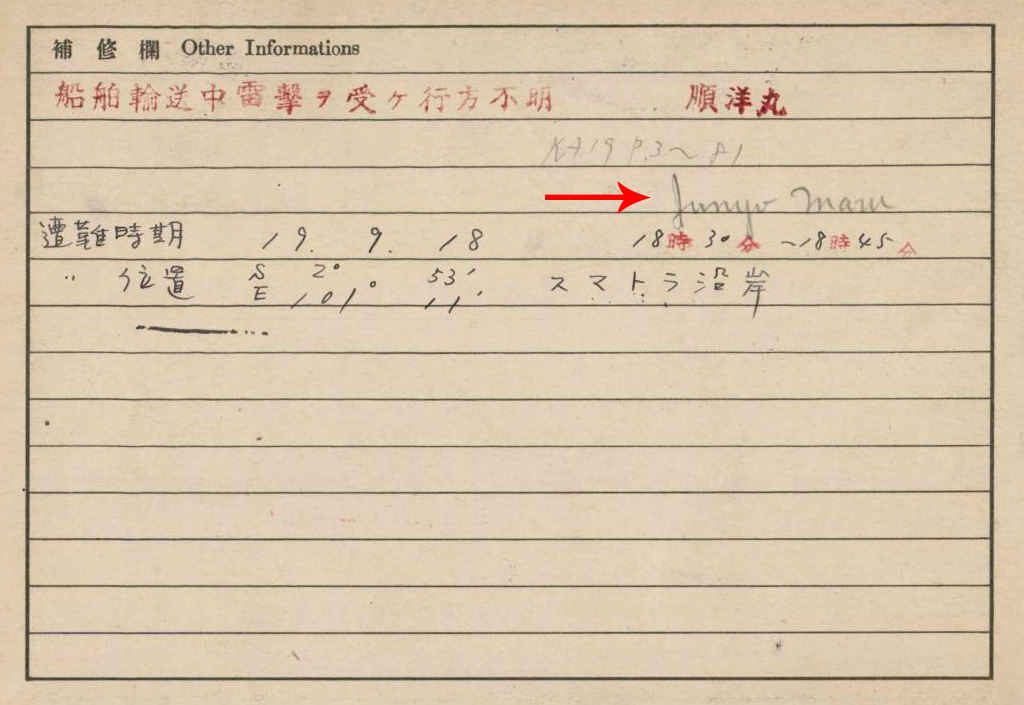 補修欄 Other Informations
船舶輸送中雷撃ヲ受ケ行方不明 順洋丸
Junyo Maru
遭難時期 19. 9. 18 18時30分 ~18時45分
〃 位置 S 2° 53′ スマトラ沿岸
E 101° 11′